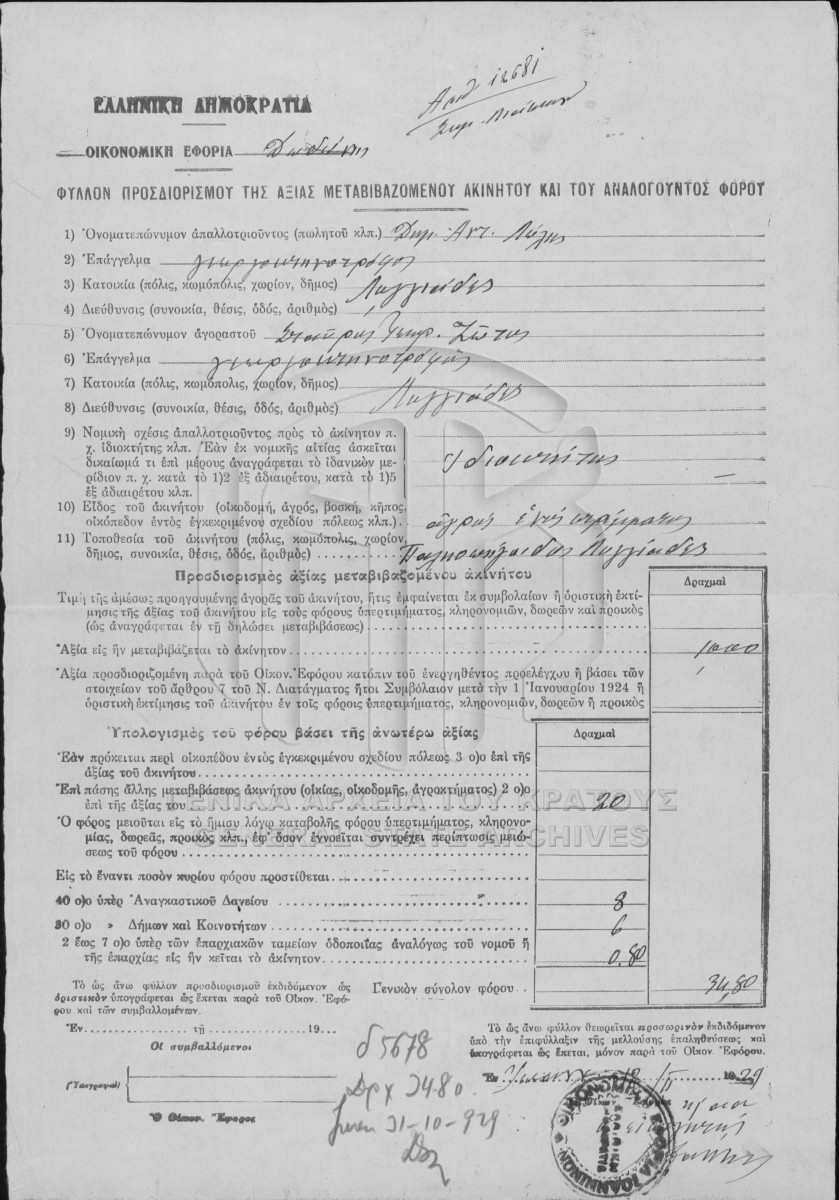 Αριθ 12681
ΕΛΛΗΝΙΚΗ ΔΗΜΟΚΡΑΤΙΑ
ΟΙΚΟΝΟΜΙΚΗ ΕΦΟΡΙΑ Δωδώνης
ΦΥΛΛΟΝ ΠΡΟΣΔΙΟΡΙΣΜΟΥ ΤΗΣ ΑΞΙΑΣ ΜΕΤΑΒΙΒΑΖΟΜΕΝΟΥ ΑΚΙΝΗΤΟΥ ΚΑΙ ΤΟΥ ΑΝΑΛΟΓΟΥΝΤΟΣ ΦΟΡΟΥ
1) Ὀνοματεπώνυμον ἀπαλλοτριοῦντος (πωλητοῦ κλπ.) Δημ. Αντ. Λώλης
2) Ἐπάγγελμα γεωργοκτηνοτρόφος
3) Κατοικία (πόλις, κωμόπολις, χωρίον, δῆμος) Λυγγιάδες
4) Διεύθυνσις (συνοικία, θέσις, ὁδός, ἀριθμός)
5) Ὀνοματεπώνυμον ἀγοραστοῦ Σταῦρος Γεωρ. Ζώτος
6) Ἐπάγγελμα γεωργοκτηνοτρόφος
7) Κατοικία (πόλις, κωμόπολις, χωρίον, δῆμος) Λυγγιάδες
8) Διεύθυνσις (συνοικία, θέσις, ὁδός, ἀριθμός)
9) Νομικὴ σχέσις ἀπαλλοτριοῦντος πρὸς τὸ ἀκίνητον π.
χ. ἰδιοκτήτης κλπ. Ἐὰν ἐκ νομικῆς αἰτίας ἀσκεῖται
δικαίωμά τι ἐπὶ μέρους ἀναγράφεται τὸ ἰδανικὸν με- Ἰδιοκτήτης
ρίδιον π. χ. κατὰ τὸ 1)2 ἐξ ἀδιαιρέτου, κατὰ τὸ 1)5
ἐξ ἀδιαιρέτου κλπ.
10) Εἶδος τοῦ ἀκινήτου (οἰκοδομή, ἀγρός, βοσκή, κῆπος,
οἰκόπεδον ἐντὸς ἐγκεκριμένου σχεδίου πόλεως κλπ.). ἀγρός ἑνός στρέμματος
11) Τοποθεσία τοῦ ἀκινήτου (πόλις, κωμόπολις, χωρίον,
δῆμος, συνοικία, θέσις, ὁδός, ἀριθμός) Λυγγιάδες
Προσδιορισμὸς ἀξίας μεταβιβαζομένου ἀκινήτου
Δραχμαὶ
Τιμὴ τῆς ἀμέσως προηγουμένης ἀγορᾶς τοῦ ἀκινήτου, ἥτις ἐμφαίνεται ἐκ συμβολαίων ἢ ὁριστικὴ ἐκτί-
μησις τῆς ἀξίας τοῦ ἀκινήτου εἰς τοὺς φόρους ὑπερτιμήματος, κληρονομιῶν, δωρεῶν καὶ προικὸς
(ὡς ἀναγράφεται ἐν τῇ δηλώσει μεταβιβάσεως)
Ἀξία εἰς ἣν μεταβιβάζεται τὸ ἀκίνητον 1000
Ἀξία προσδιοριζομένη παρὰ τοῦ Οἰκον. Ἐφόρου κατόπιν τοῦ ἐνεργηθέντος προελέγχου ἢ βάσει τῶν
στοιχείων τοῦ ἄρθρου 7 τοῦ Ν. Διατάγματος ἤτοι Συμβόλαιον μετὰ τὴν 1 Ἰανουαρίου 1924 ἢ
ὁριστικὴ ἐκτίμησις τοῦ ἀκινήτου ἐν τοῖς φόροις ὑπερτιμήματος, κληρονομιῶν, δωρεῶν ἢ προικός
Ὑπολογισμὸς τοῦ φόρου βάσει τῆς ἀνωτέρω ἀξίας
Δραχμαὶ
Ἐὰν πρόκειται περὶ οἰκοπέδου ἐντὸς ἐγκεκριμένου σχεδίου πόλεως 3 ο)ο ἐπὶ τῆς
ἀξίας τοῦ ἀκινήτου
Ἐπὶ πάσης ἄλλης μεταβιβάσεως ἀκινήτου (οἰκίας, οἰκοδομῆς, ἀγροκτήματος) 2 ο)ο
ἐπὶ τῆς ἀξίας του 20
ΓΕΝΙΚΑ ΑΡΧΕΙΑ ΤΟΥ ΚΡΑΤΟΥΣ
Ὁ φόρος μειοῦται εἰς τὸ ἥμισυ λόγῳ καταβολῆς φόρου ὑπερτιμήματος, κληρονο-
μίας, δωρεᾶς, προικὸς κλπ., ἐφ' ὅσον ἐννοεῖται συντρέχει περίπτωσις μειώ-
σεως τοῦ φόρου
GENERAL STATE ARCHIVES
Εἰς τὸ ἔναντι ποσὸν κυρίου φόρου προστίθεται
40 ο)ο ὑπὲρ Ἀναγκαστικοῦ Δανείου 8
30 ο)ο » Δήμων καὶ Κοινοτήτων 6
2 ἕως 7 ο)ο ὑπὲρ τῶν ἐπαρχιακῶν ταμείων ὁδοποιΐας ἀναλόγως τοῦ νομοῦ ἢ
τῆς ἐπαρχίας εἰς ἣν κεῖται τὸ ἀκίνητον 0.80
Γενικὸν σύνολον φόρου 34,80
Τὸ ὡς ἄνω φύλλον προσδιορισμοῦ ἐκδιδόμενον ὡς
ὁριστικὸν ὑπογράφεται ὡς ἕπεται παρὰ τοῦ Οἰκον. Ἐφό-
ρου καὶ τῶν συμβαλλομένων.
Ἐν τῇ 19
Οἱ συμβαλλόμενοι
(Ὑπογραφαὶ)
Ὁ Οἰκον. Ἔφορος
δ 5678
Δρχ 3480
31-10-929
Τὸ ὡς ἄνω φύλλον θεωρεῖται προσωρινὸν ἐκδιδόμενον
ὑπὸ τὴν ἐπιφύλαξιν τῆς μελλούσης ἐπαληθεύσεως καὶ
ὑπογράφεται ὡς ἕπεται, μόνον παρὰ τοῦ Οἰκον. Ἐφόρου.
Ἐν 1929
ΟΙΚΟΝΟΜΙΚΗ ΕΦΟΡΙΑ ΙΩΑΝΝΙΝΩΝ